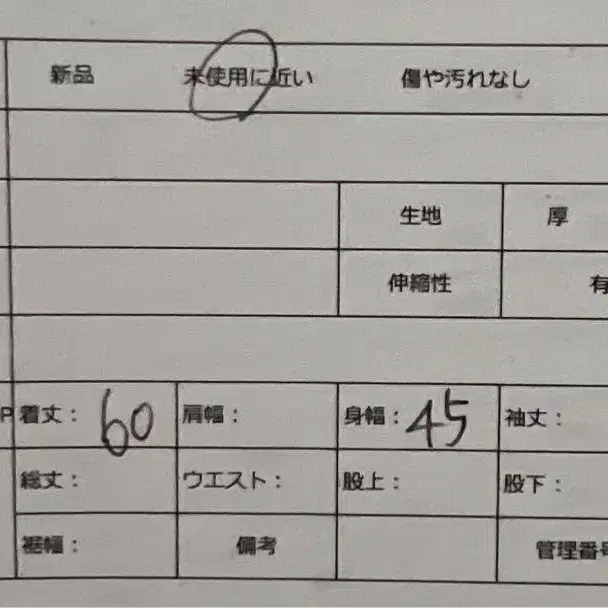 新品 未使用に近い 傷や汚れなし
生地 厚
伸縮性 有
P 着丈： 60 肩幅： 身幅： 45 袖丈：
総丈： ウエスト： 股上： 股下：
裾幅： 備考 管理番号